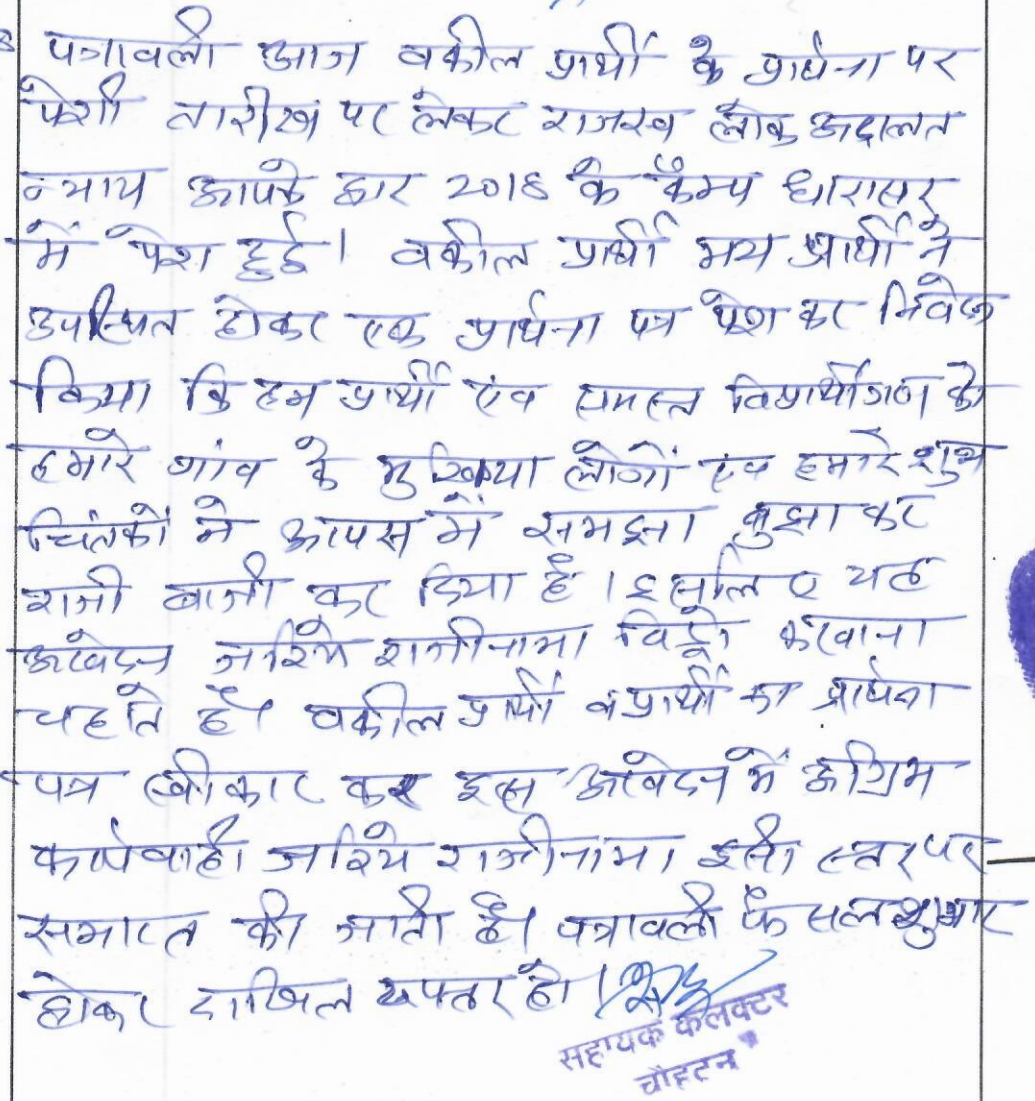 पत्रावली आज वकील प्रार्थी के प्रार्थना पर
पेशी तारीख पर लेकर राजस्व लोक अदालत
न्याय आपके द्वार 2018 के कैम्प धारासर
में पेश हुई। वकील प्रार्थी मय प्रार्थी ने
उपस्थित होकर एक प्रार्थना पत्र पेश कर निवेदन
किया कि हम प्रार्थी एंव समस्त विप्रार्थीगण को
हमारे गांव के मुखिया लोगों एंव हमारे शुभ
चिंतकों ने आपस में समझा बुझा कर
राजी बाजी कर दिया है। इसलिए यह
आवेदन जरिये राजीनामा विड्रो करवाना
चाहते है। वकील प्रार्थी व प्रार्थी का प्रार्थना
पत्र स्वीकार कर इस आवेदन में अग्रिम
कार्यवाही जरिये राजीनामा इसी स्तर पर
समाप्त की जाती है। पत्रावली फैसलशुमार
होकर दाखिल दफ्तर हो।
सहायक कलक्टर
चौहटन